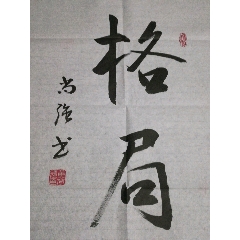 格局
尚强书